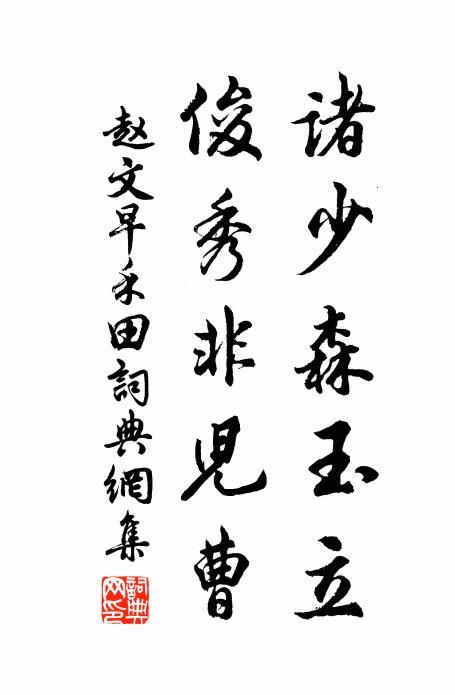 諸少森玉立
俊秀非児曹
赵文早禾田詞典網集
詞典網印